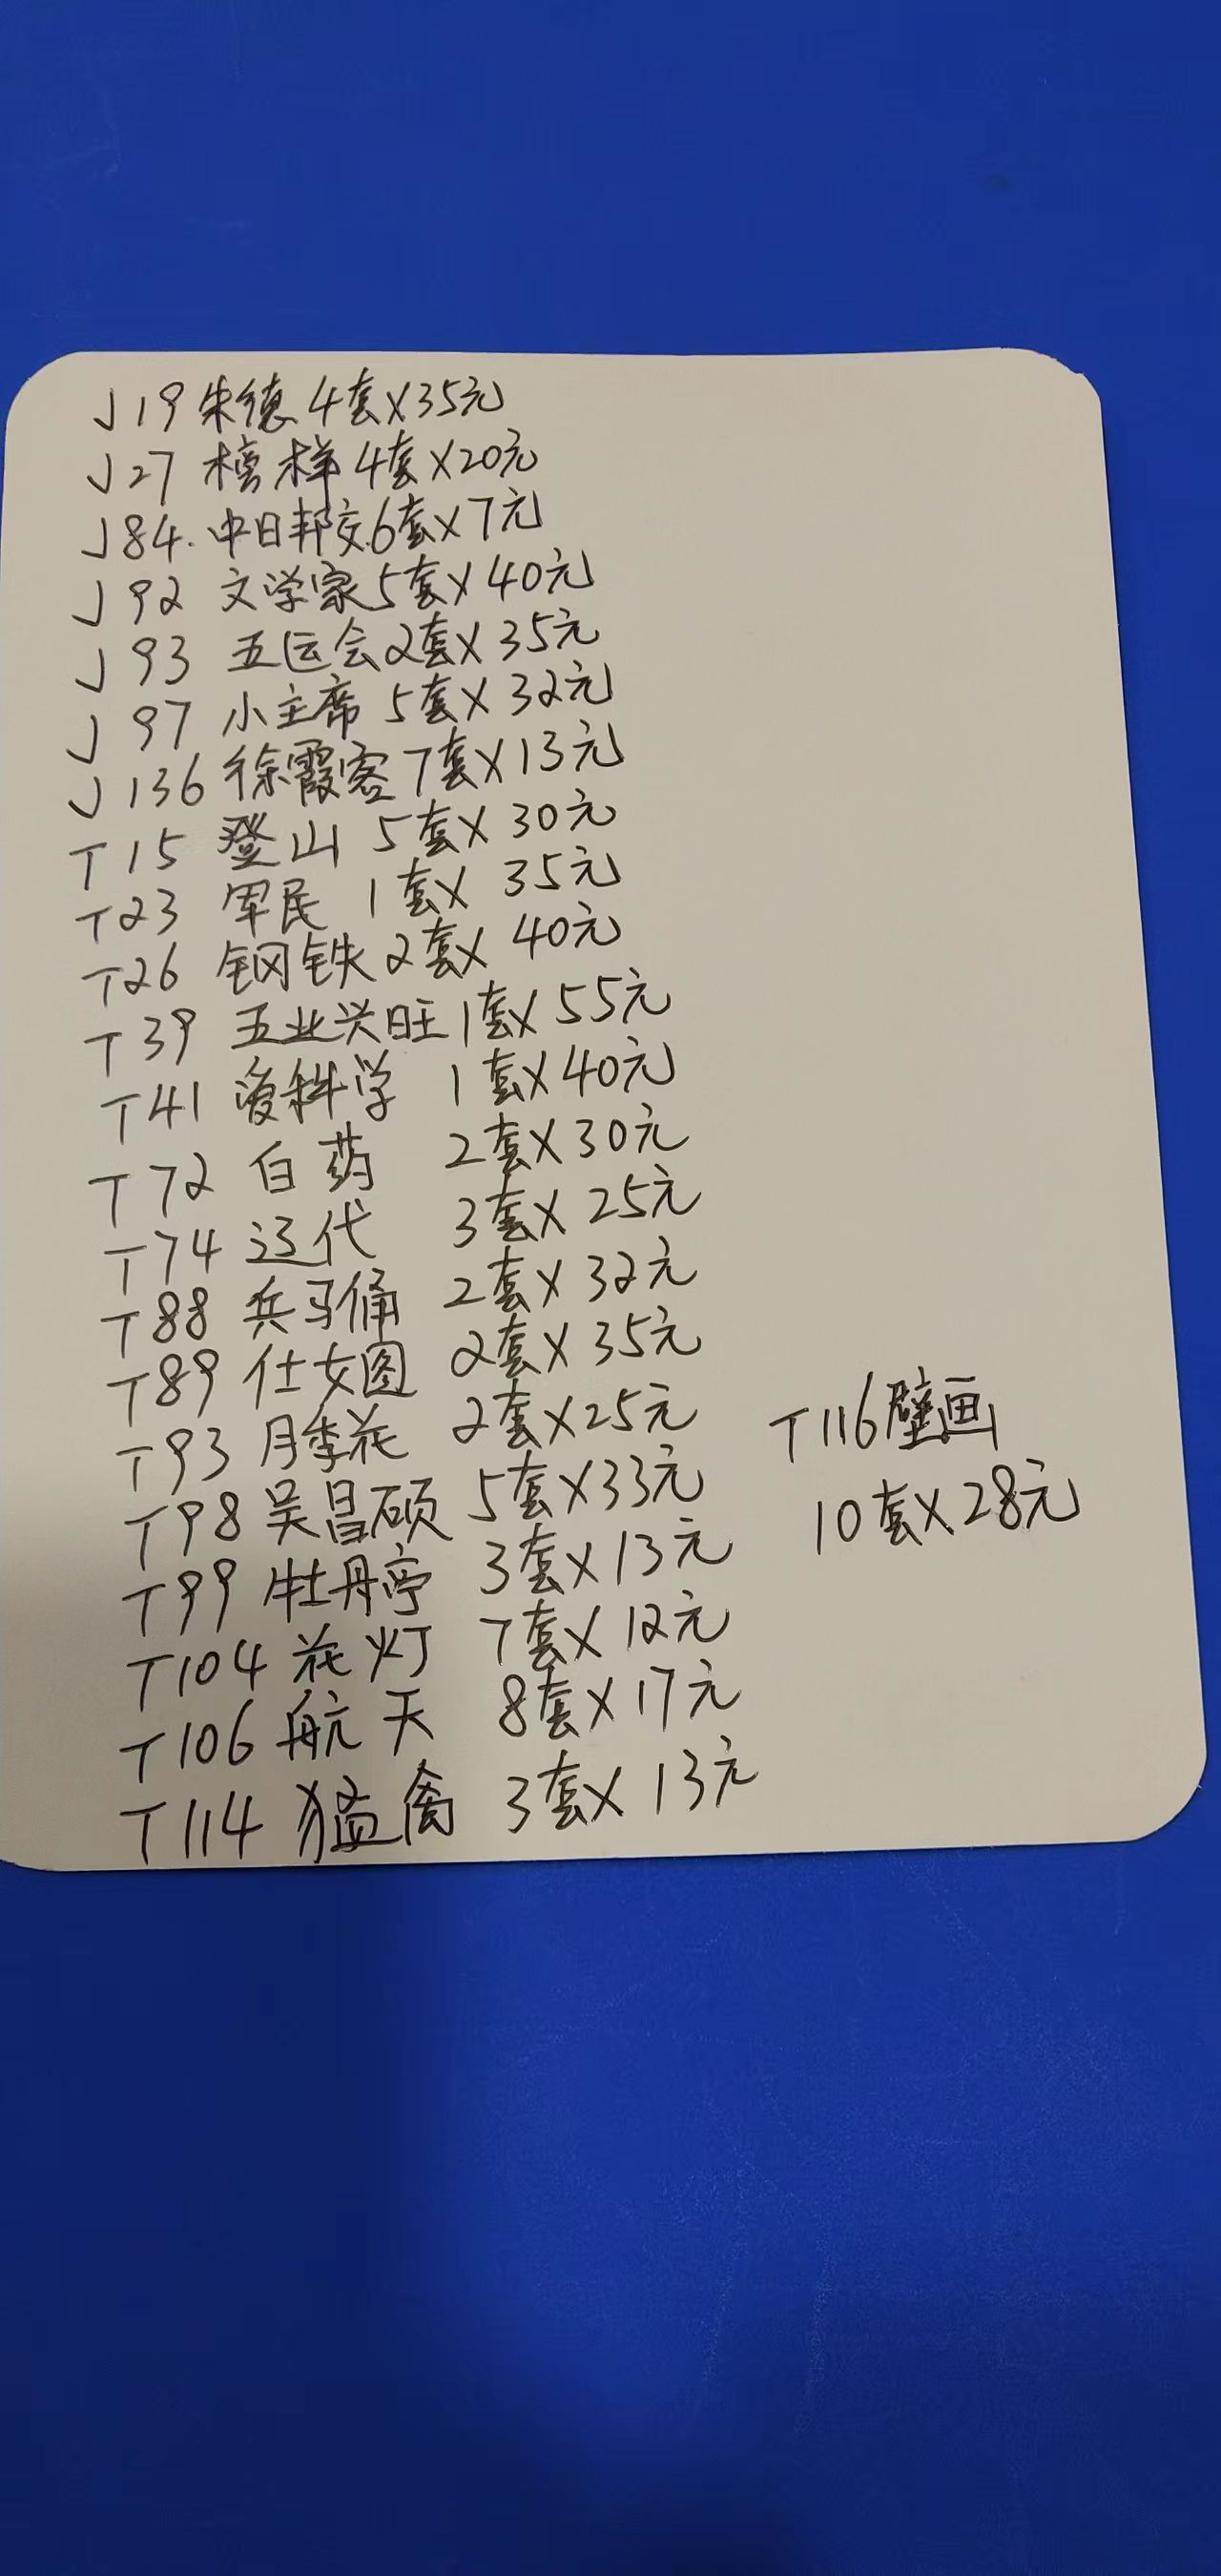 J19 朱德 4套X35元
J27 榜样 4套X20元
J84. 中日邦交6套X7元
J92 文学家5套X40元
J93 五运会2套X35元
J97 小主席 5套X32元
J136 徐霞客7套X13元
T15 登山 5套X30元
T23 军民 1套X 35元
T26 钢铁 2套X 40元
T39 五业兴旺1套X55元
T41 爱科学 1套X40元
T72 白药 2套X30元
T74 辽代 3套X 25元
T88 兵马俑 2套X 32元
T89 仕女图 2套X 35元
T93 月季花 2套X25元
T98 吴昌硕 5套X33元
T99 牡丹亭 3套X13元
T104 花灯 7套X12元
T106 航天 8套X17元
T114 猛禽 3套X 13元
T116壁画
10套X28元